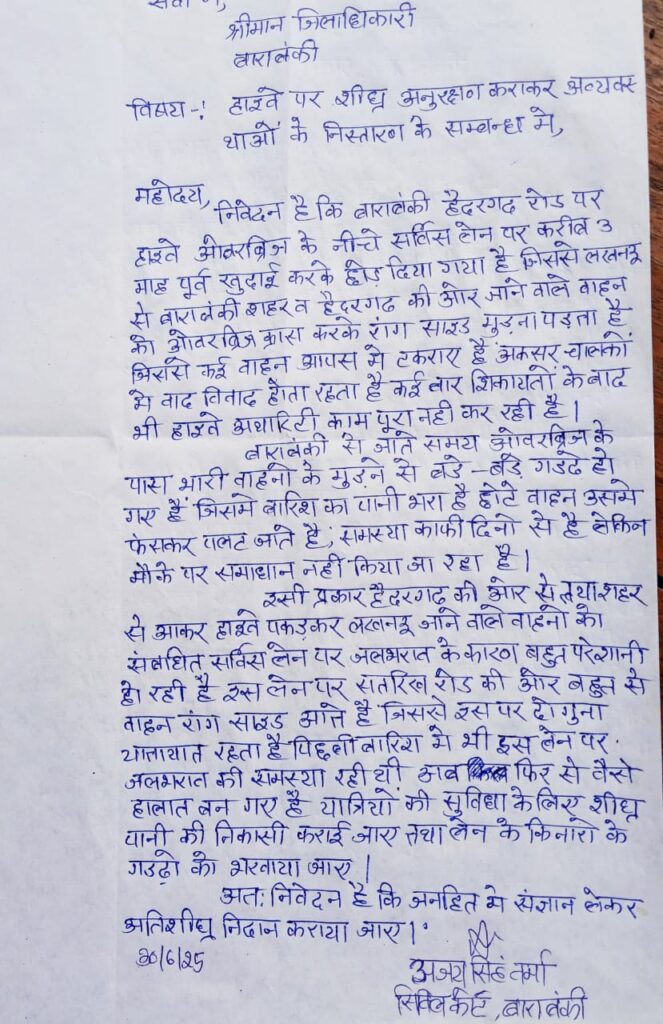 सेवा में,
श्रीमान जिलाधिकारी
बाराबंकी
विषय -: हाइवे पर शीघ्र अनुरक्षण कराकर अव्यवस्
थाओं के निस्तारण के सम्बन्ध मे,
महोदय,
निवेदन है कि बाराबंकी हैदरगढ रोड पर
हाइवे ओवरब्रिज के नीचे सर्विस लेन पर करीब 3
माह पूर्व खुदाई करके छोड़ दिया गया है जिससे लखनऊ
से बाराबंकी शहर व हैदरगढ की ओर जाने वाले वाहन
को ओवरब्रिज क्रास करके रांग साइड मुड़ना पड़ता है
जिससे कई वाहन आपस मे टकराए हैं अकसर चालकों
मे वाद विवाद होता रहता है कई बार शिकायतों के बाद
भी हाइवे अथारिटी काम पूरा नही कर रही है।
बाराबंकी से जाते समय ओवरब्रिज के
पास भारी वाहनों के मुडने से बडे-बडे गडढे हो
गए हैं जिसमे बारिश का पानी भरा है छोटे वाहन उसमे
फंसकर पलट जाते है, समस्या काफी दिनो से है लेकिन
मौके पर समाधान नही किया जा रहा है।
इसी प्रकार हैदरगढ की ओर से तथा शहर
से आकर हाइवे पकड़कर लखनऊ जाने वाले वाहनो को
संबधित सर्विस लेन पर जलभराव के कारण बहुत परेशानी
हो रही है इस लेन पर सतरिख रोड की ओर बहुत से
वाहन रांग साइड आते है जिससे इस पर दोगुना
यातायात रहता है पिछली बारिश मे भी इस लेन पर
जलभराव की समस्या रही थी अब फिर से वैसे
हालात बन गए है यात्रियों की सुविधा के लिए शीघ्र
पानी की निकासी कराई जाए तथा लेन के किनारो के
गडढो को भरवाया जाए।
अतः निवेदन है कि जनहित मे संज्ञान लेकर
अतिशीघ्र निदान कराया जाए।
30/6/25
अजय सिंह वर्मा
सिविल कोर्ट, बाराबंकी